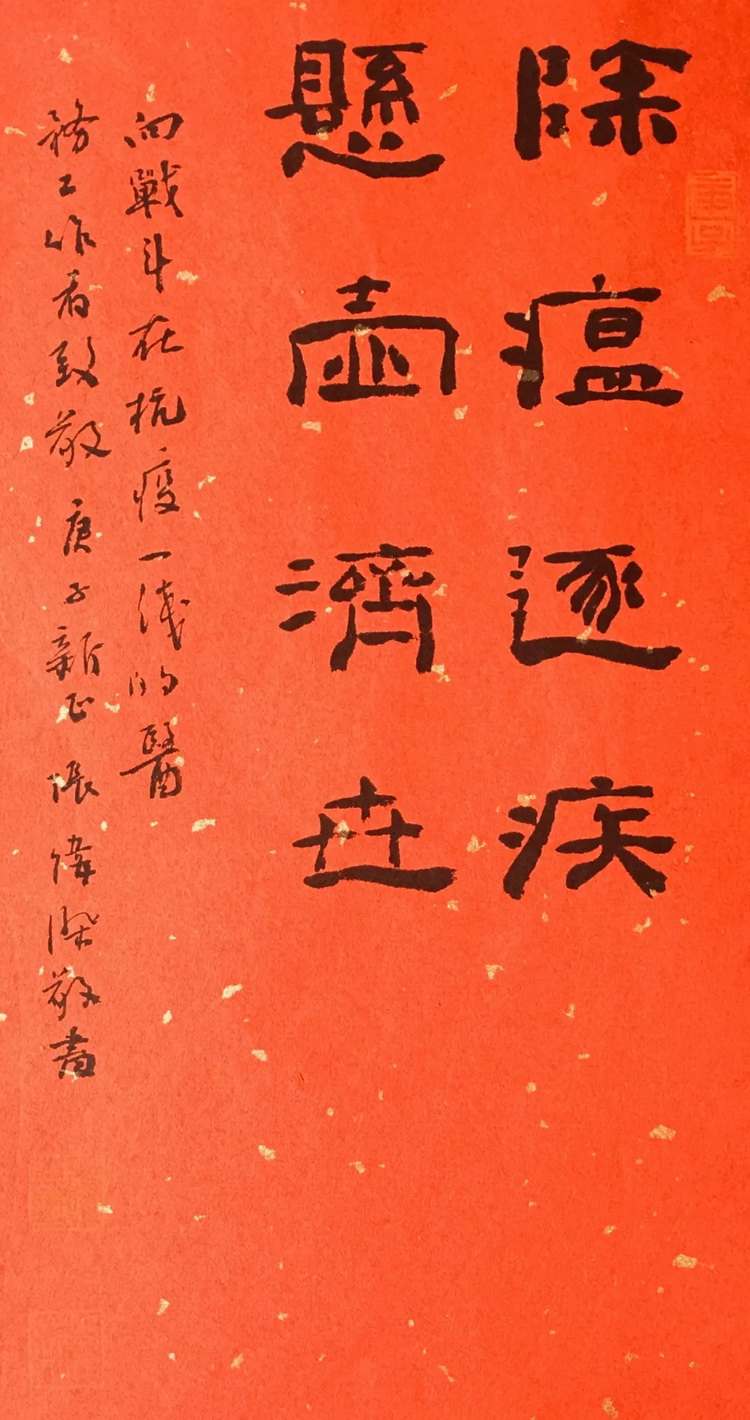 除瘟逐疾
懸壺濟世
向戰斗在抗疫一线的醫
務工作者致敬 庚子新正 張偉 敬書